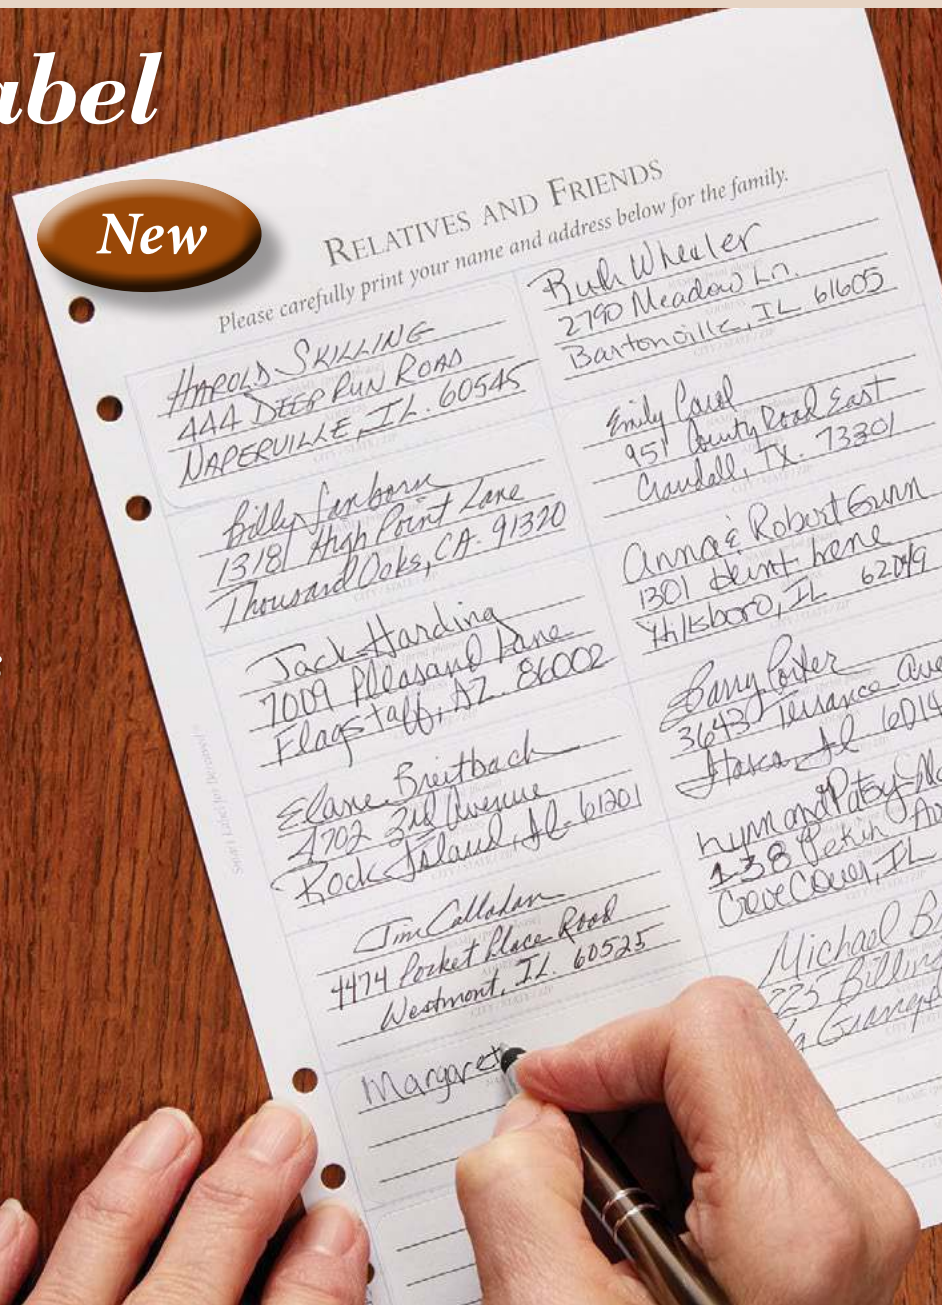 abel
New
RELATIVES AND FRIENDS
Please carefully print your name and address below for the family.
HAROLD SKILLING
444 DEEP RUN ROAD
NAPERVILLE, IL. 60545
Billy Sanborn
1318 High Point Lane
Thousand Oaks, CA. 91320
Jack Harding
7009 Pleasant Lane
Flagstaff, AZ. 86002
Elane Breitbach
4702 3rd Avenue
Rock Island, Il. 61201
Jim Callahan
4474 Pocket Place Road
Westmont, IL. 60525
Margaret
Ruth Wheeler
2790 Meadow Ln.
Bartonville, IL 61605
Emily Carol
951 County Road East
Crandall, TX. 73301
Anna & Robert Gunn
1301 Lane
Hillsboro, IL 62049
Barry Porter
3643 Terrance Ave
Itasca Il 6014
Lynn and Patsy
138 Pekin Av
Creve Coeur, IL
Michael B
225 Billin
CITY / STATE / ZIP